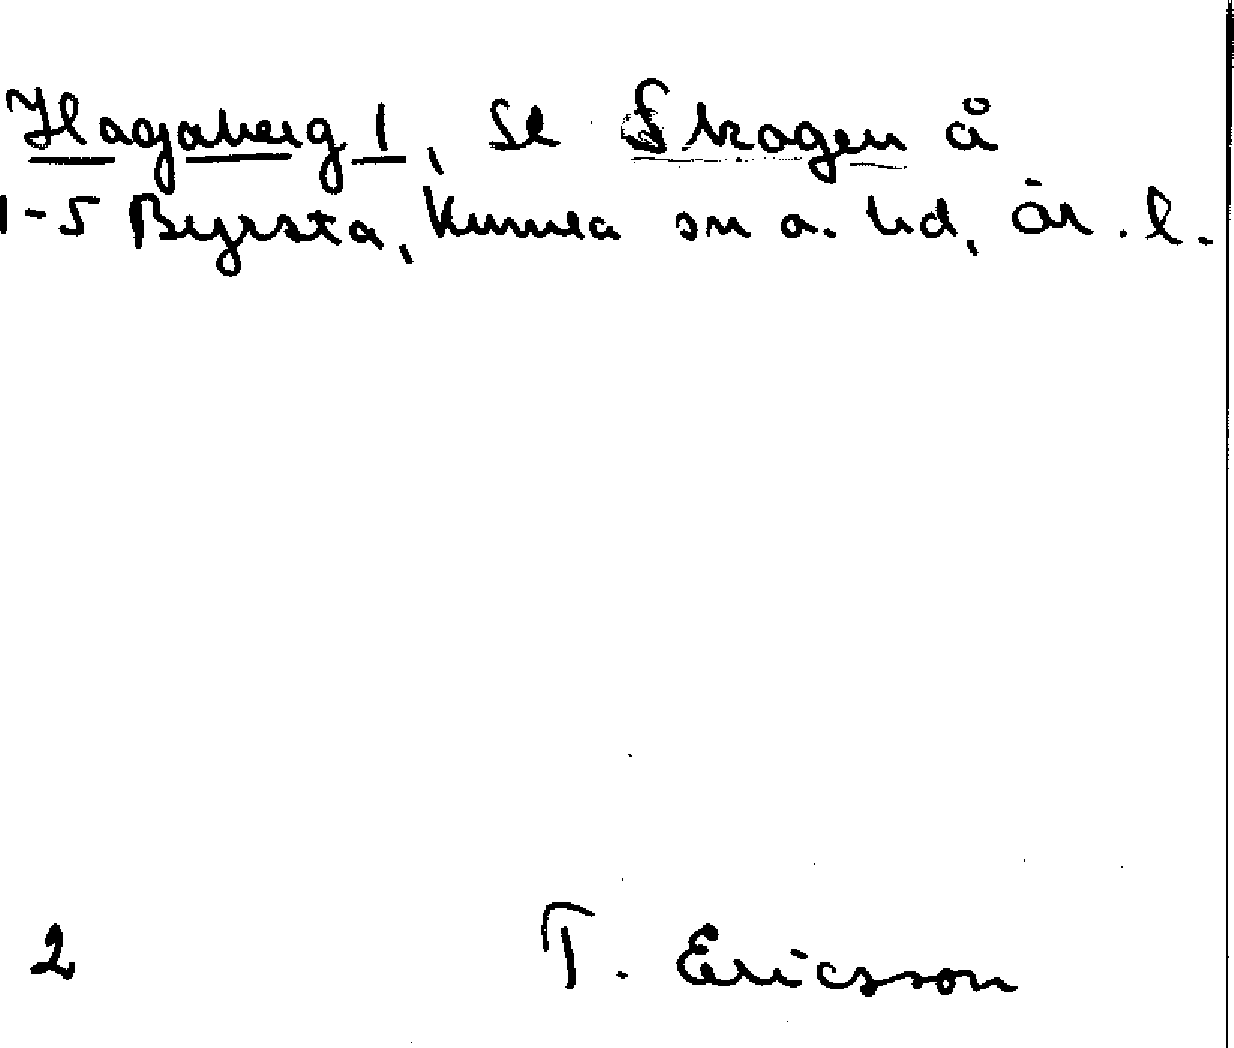 Hagaberg 1, se Skogen å
1-5 Byrsta, Kumla sn o. hd, Ör. l.
2 T. Ericsson